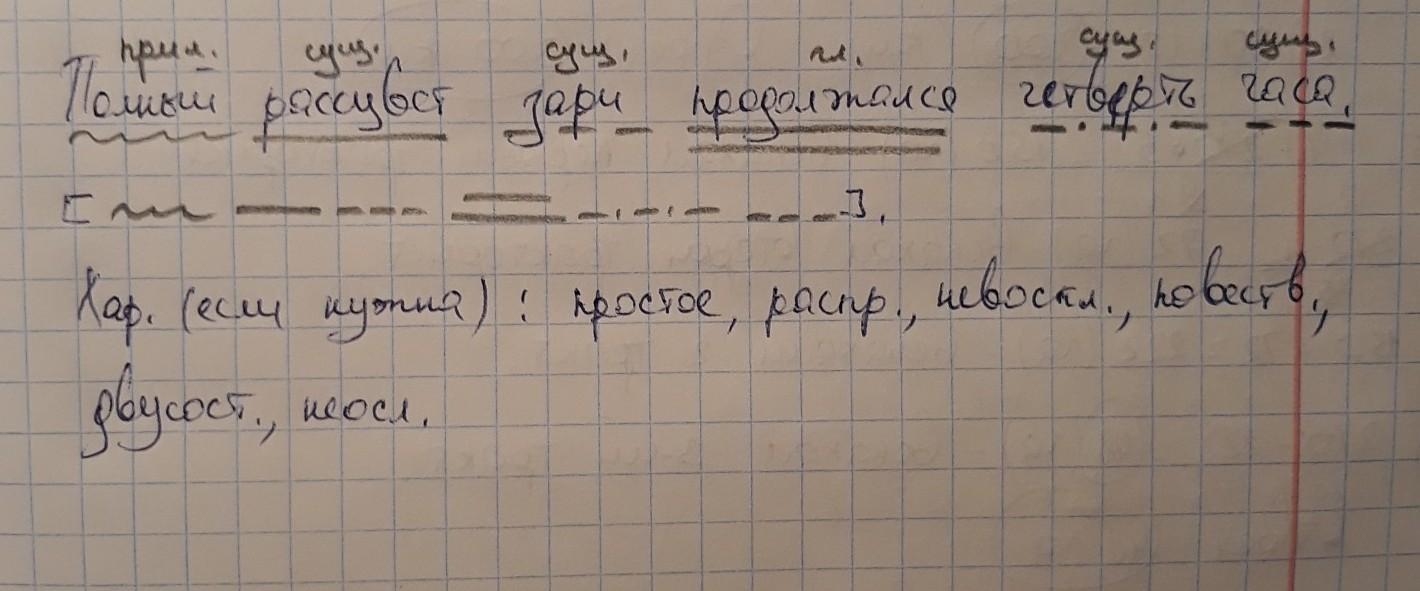 прил. сущ. сущ. гл. сущ. сущ.
Полный рассцвет зари продолжался четверть часа.
[ ].
Хар. (если нужна): простое, распр., невоскл., повеств.,
двусост., неосл.